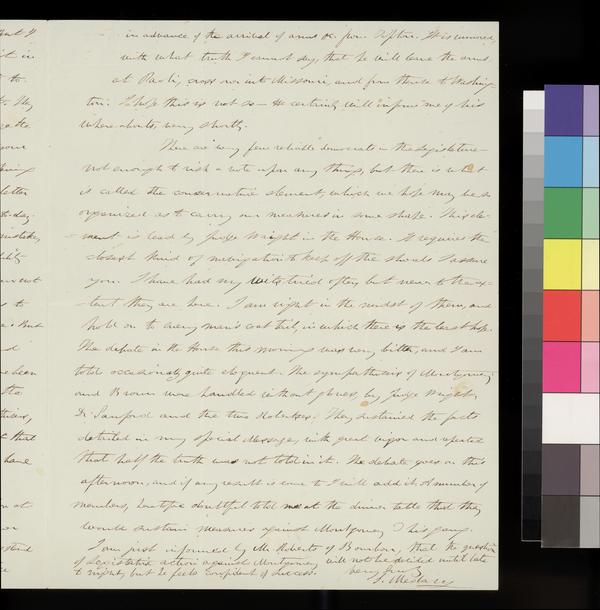 in advance of the arrival of arms &c. from Tipton. It is rumored,
with what truth I cannot say, that he will leave the arms
at Paoli, cross over into Missouri, and from thence to Washing-
ton. I hope this is not so — He certainly will inform me of his
whereabouts, very shortly.
There are very few reliable democrats in the Legislature —
not enough to risk a vote upon any thing, but there is what
is called the conservative element, which we hope may be so
organized as to carry our measures in some shape. This ele-
ment is lead by Judge Wright in the House. It requires the
closest kind of navigation to keep off the shoals I assure
you. I have had my wits tried often but never to the ex-
tent they are here. I am right in the midst of them, and
hold on to every man's coat tail, in which there is the least hope.
The debate in the House this morning was very bitter, and I am
told occasionally quite eloquent. The sympathisers of Montgomery
and Brown were handled without gloves, by Judge Wright,
Dr. Sanford and the two Robertses. They sustained the facts
detailed in my special Message, with great vigor and repeated
that half the truth was not told in it. The debate goes on this
afternoon, and if any result is come to I will add it. A number of
members, heretofore doubtful told me at the dinner table that they
would sustain measures against Montgomery & his gang.
I am just informed by Mr Roberts of Bourbon, that the question
of Legislative action against Montgomery will not be decided until late
to night, but he feels confident of success.
Very Truly
S. Medary